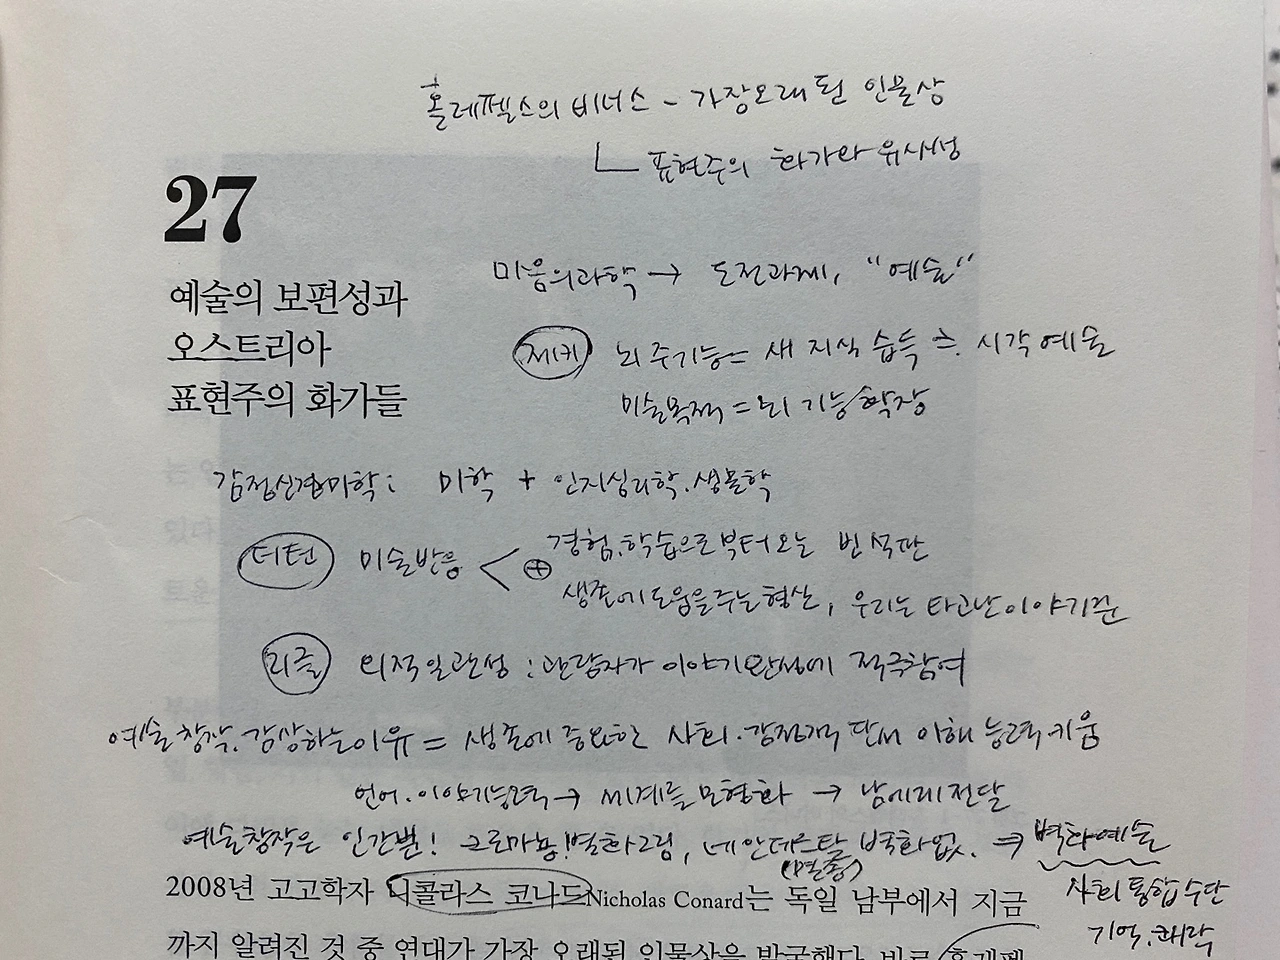 홀레펠스의 비너스 - 가장 오래된 인물상
표현주의 화가와 유사성
27
예술의 보편성과
오스트리아
표현주의 화가들
마음의 과학 → 도전과제, "예술"
제키 뇌 주기능 = 새 지식 습득 ≒ 시각 예술
미술목적 = 뇌 기능 확장
감정신경미학 : 미학 + 인지심리학.생물학
더턴 미술반응 < ⊕ 경험.학습으로부터 오는 빈 석판
생존에 도움을 주는 형상, 우리는 타고난 이야기꾼
리글 외적 일관성 : 관람자가 이야기 완성에 적극참여
예술 창작.감상하는 이유 = 생존에 중요한 사회.감정적 단서 이해 능력 키움
언어.이야기능력 → 세계를 모형화 → 남에게 전달
예술창작은 인간뿐! 크로마뇽!벽화그림, 네안데르탈 벽화 없. ⇒ 벽화예술
(멸종)
사회 통합 수단
기억.쾌락
2008년 고고학자 니콜라스 코나드Nicholas Conard는 독일 남부에서 지금
까지 알려진 것 중 연대가 가장 오래된 인물상을 발굴했다. 바로